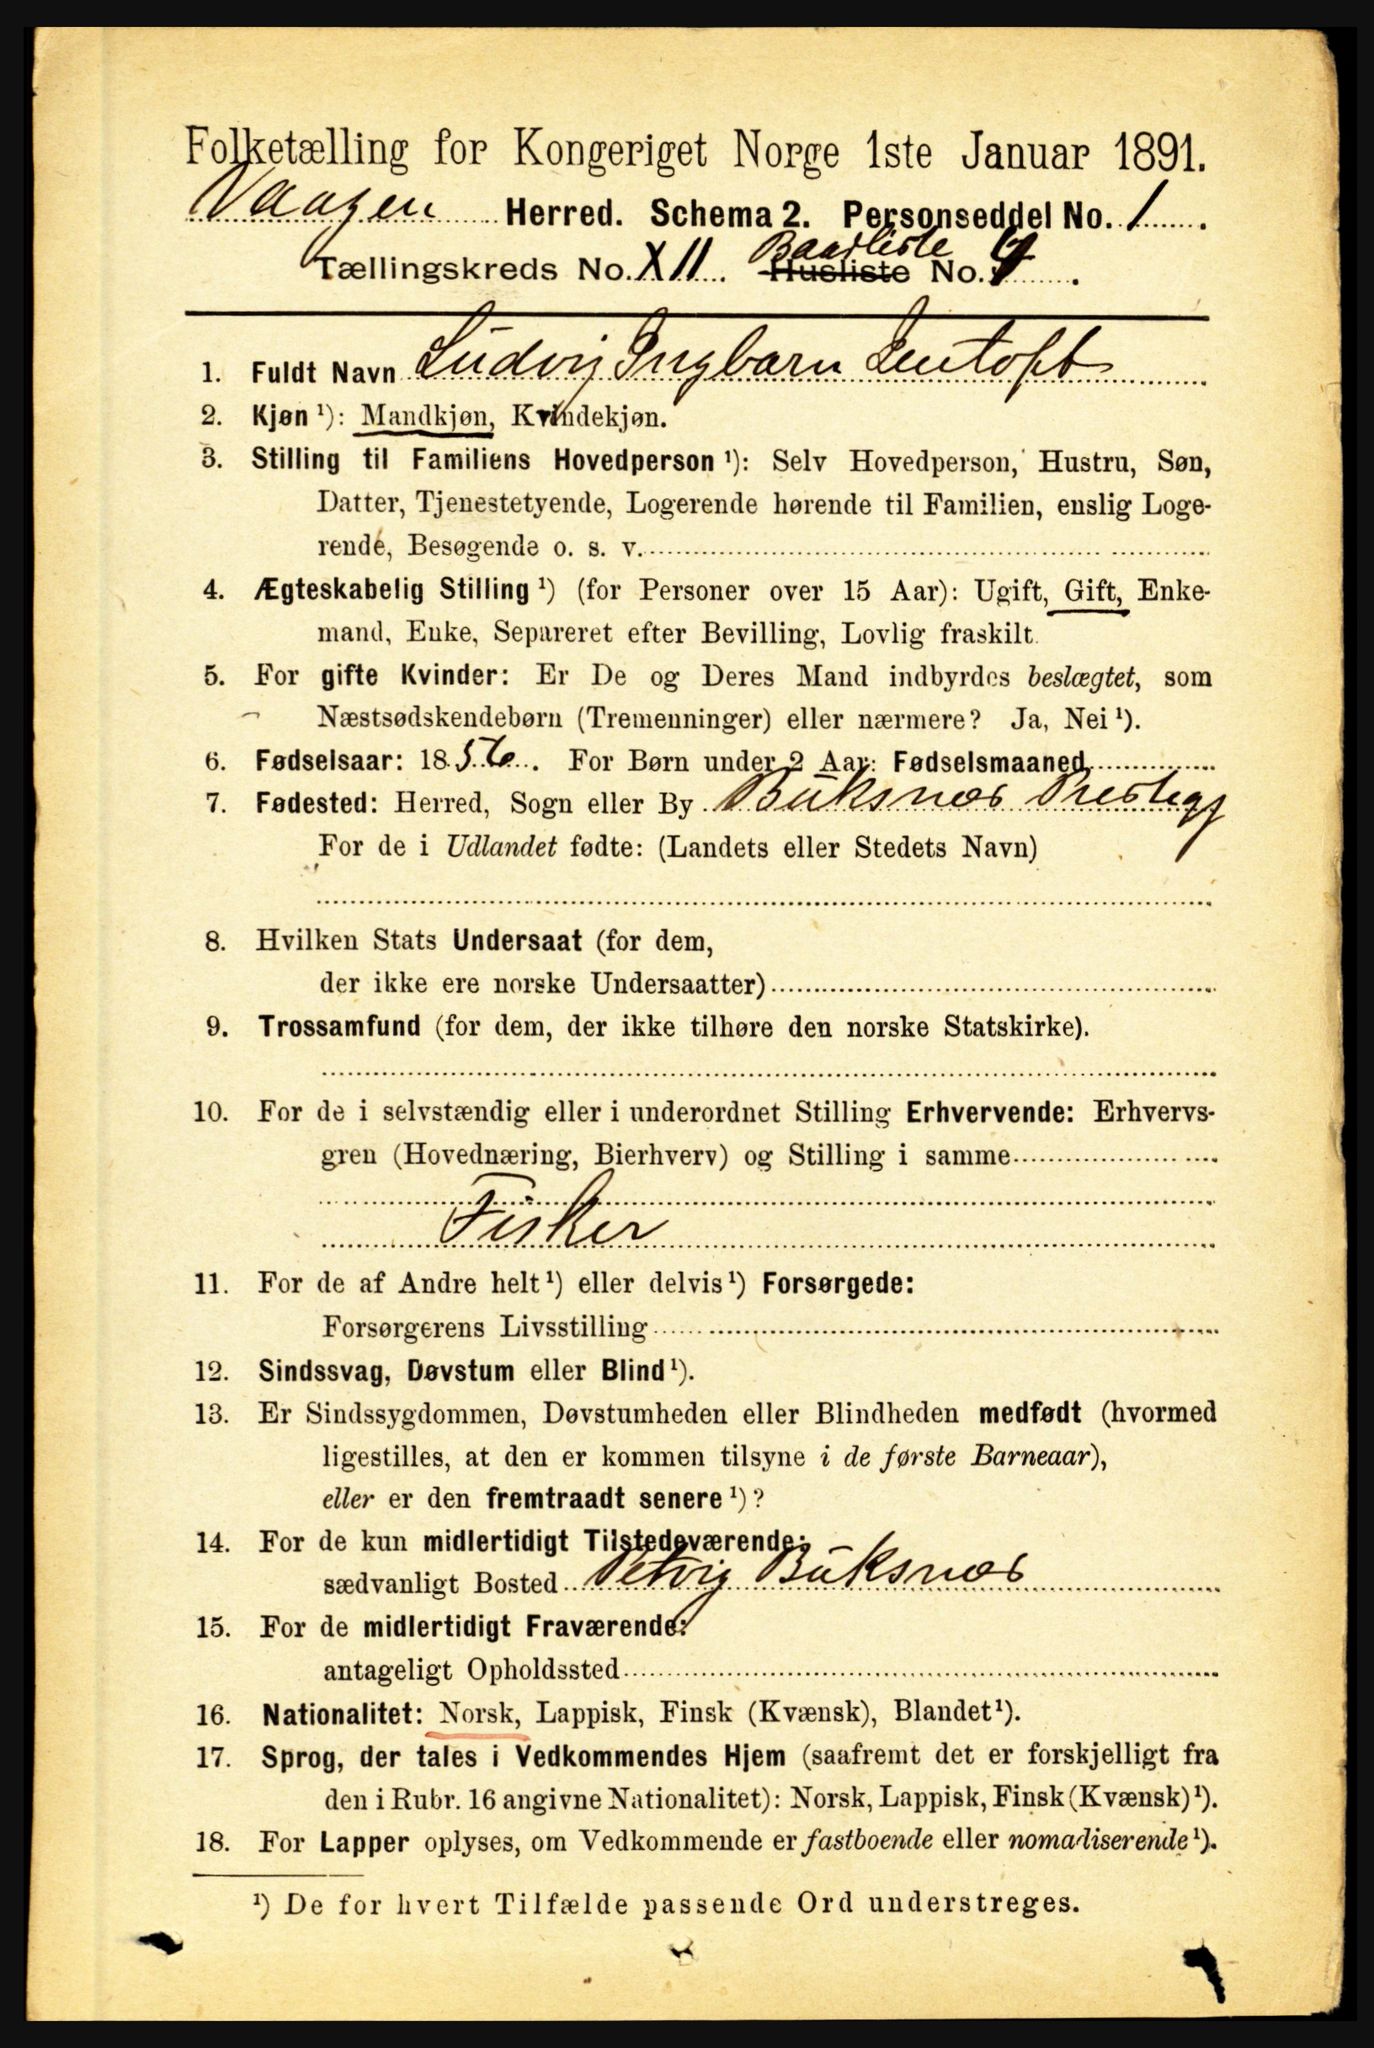 Folketælling for Kongeriget Norge 1ste Januar 1891.
Vaagen Herred. Schema 2. Personseddel No. 1.
Baadliste
Tællingskreds No. XII. Husliste No. 4.
1. Fuldt Navn Ludvig Ingbarn Jentoft
2. Kjøn ¹): Mandkjøn, Kvindekjøn.
3. Stilling til Familiens Hovedperson ¹): Selv Hovedperson, Hustru, Søn,
Datter, Tjenestetyende, Logerende hørende til Familien, enslig Loge-
rende, Besøgende o. s. v.
4. Ægteskabelig Stilling ¹) (for Personer over 15 Aar): Ugift, Gift, Enke-
mand, Enke, Separeret efter Bevilling, Lovlig fraskilt.
5. For gifte Kvinder: Er De og Deres Mand indbyrdes beslægtet, som
Næstsødskendebørn (Tremenninger) eller nærmere? Ja, Nei ¹).
6. Fødselsaar: 1856. For Børn under 2 Aar: Fødselsmaaned
7. Fødested: Herred, Sogn eller By Buksnæs Prestegj
For de i Udlandet fødte: (Landets eller Stedets Navn)
8. Hvilken Stats Undersaat (for dem,
der ikke ere norske Undersaatter)
9. Trossamfund (for dem, der ikke tilhøre den norske Statskirke).
10. For de i selvstændig eller i underordnet Stilling Erhvervende: Erhvervs-
gren (Hovednæring, Bierhverv) og Stilling i samme
Fisker
11. For de af Andre helt ¹) eller delvis ¹) Forsørgede:
Forsørgerens Livsstilling
12. Sindssvag, Døvstum eller Blind ¹).
13. Er Sindssygdommen, Døvstumheden eller Blindheden medfødt (hvormed
ligestilles, at den er kommen tilsyne i de første Barneaar),
eller er den fremtraadt senere ¹)?
14. For de kun midlertidigt Tilstedeværende:
sædvanligt Bosted Petvig Buksnæs
15. For de midlertidigt Fraværende:
antageligt Opholdssted
16. Nationalitet: Norsk, Lappisk, Finsk (Kvænsk), Blandet ¹).
17. Sprog, der tales i Vedkommendes Hjem (saafremt det er forskjelligt fra
den i Rubr. 16 angivne Nationalitet): Norsk, Lappisk, Finsk (Kvænsk) ¹).
18. For Lapper oplyses, om Vedkommende er fastboende eller nomadiserende ¹).
¹) De for hvert Tilfælde passende Ord understreges.